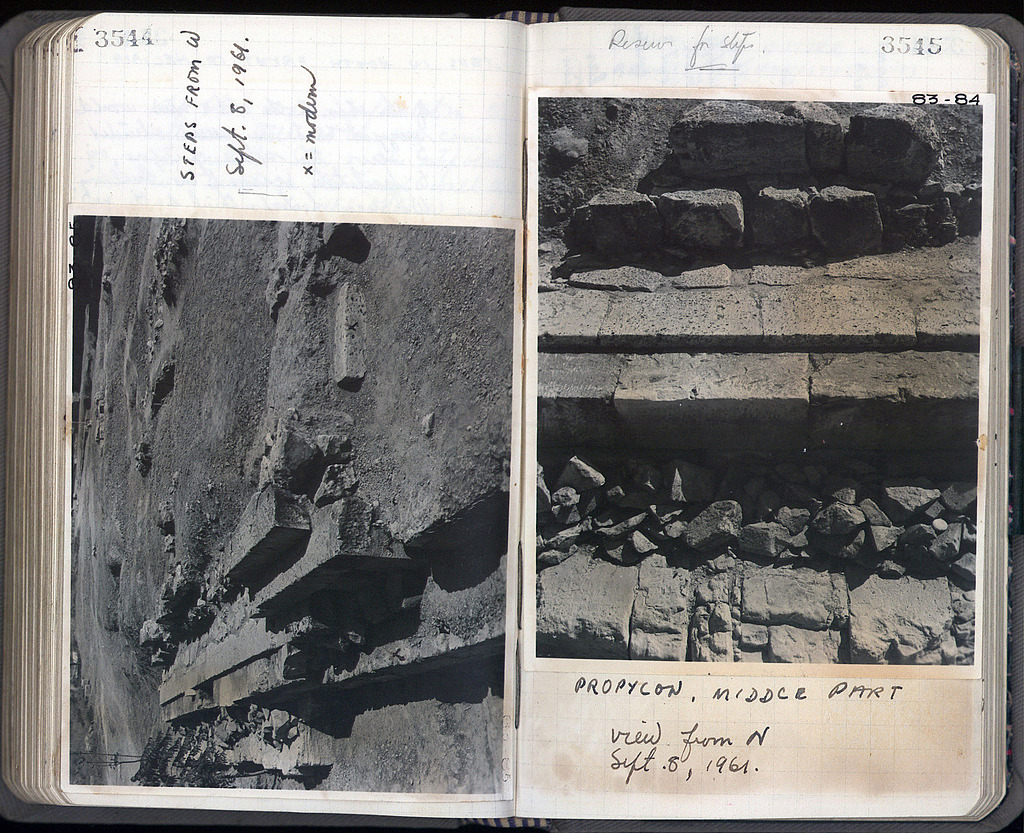 3544
STEPS FROM W
Sept. 8, 1961.
x = modern
x
3545
Reserve for steps.
83-84
PROPYLON, MIDDLE PART
view from N
Sept. 8, 1961.